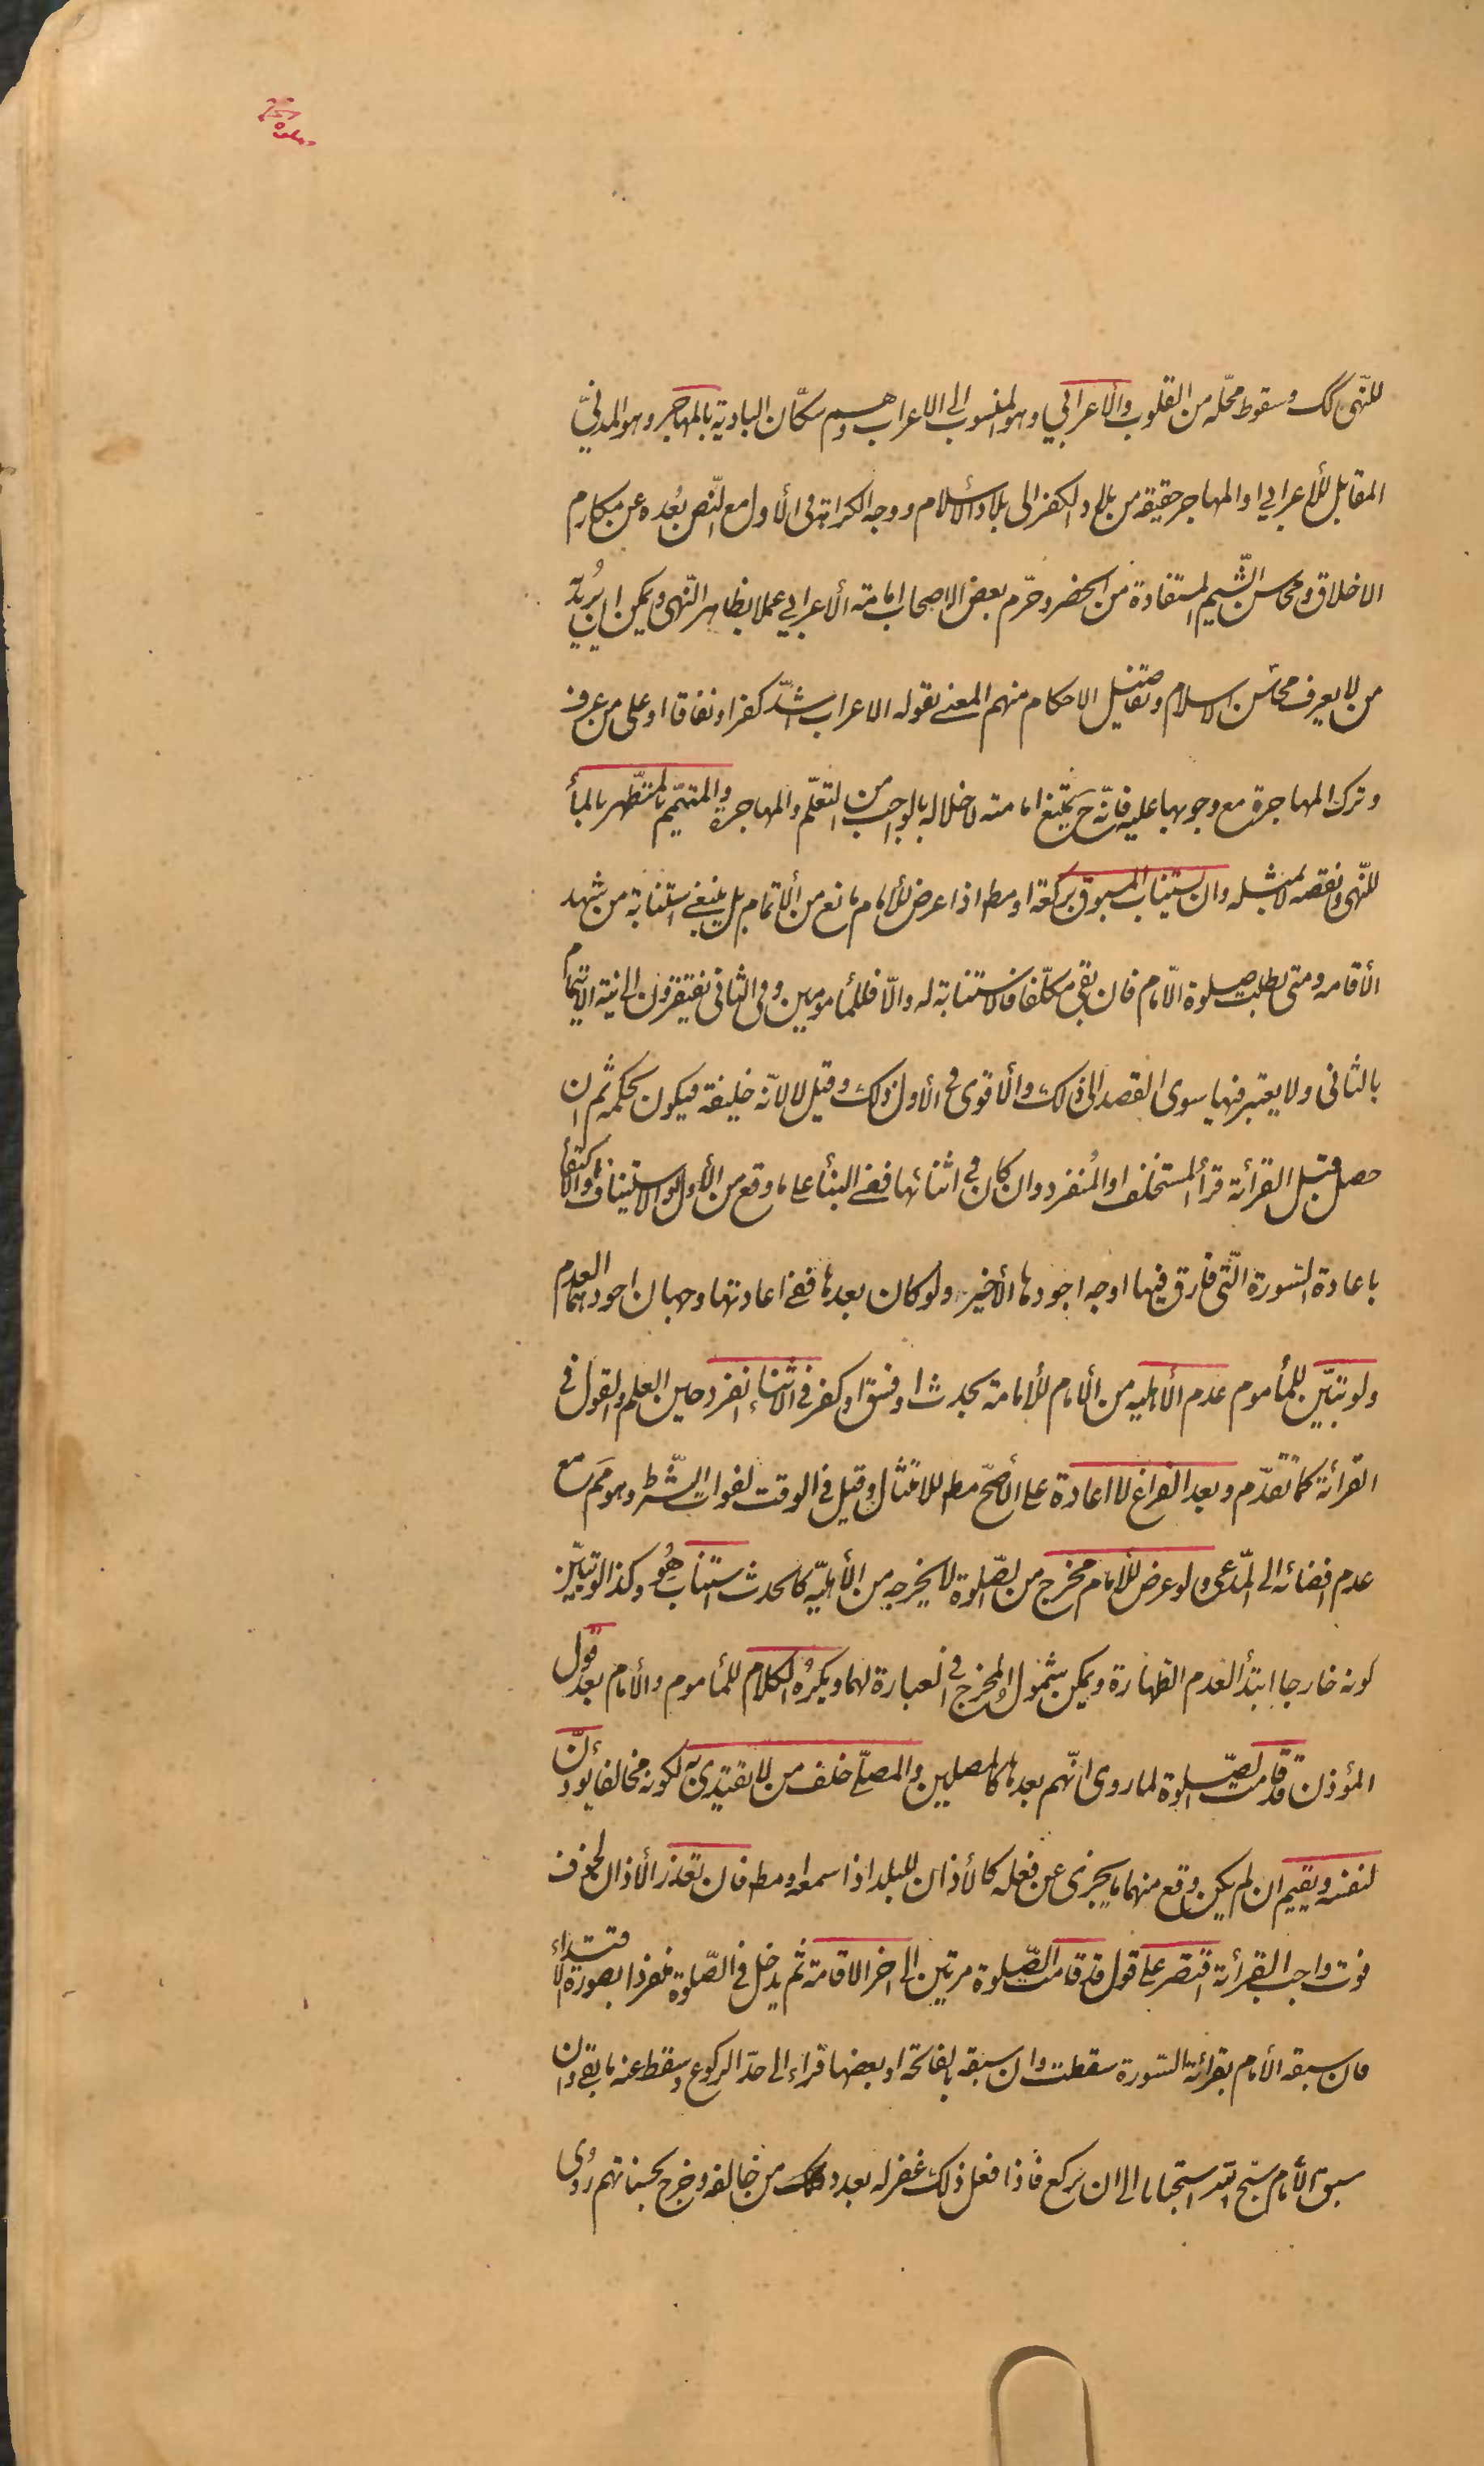 للنّهی کک وسقوط محلّه من القلوب والأعرابي وهو المنسوب الی الاعراب وهم سکّان البادیة بالمهاجر وهو المدنيّ
المقابل للأعرابي او المهاجر حقیقة من بلاد الکفر الی بلاد الاسلام ووجه الکراهة فی الأول مع النّص بُعده عن مکارم
الاخلاق ومحاسن الشّیم المستفادة من الحضر وحرّم بعض الاصحاب امامة الأعرابي عملا بظاهر النّهی ویمکن ان یُرید به
من لا یعرف محاسن الاسلام وتفاصیل الاحکام منهم المعنی بقوله الاعراب اشدّ کفرا ونفاقا او علی من عرف
وترک المهاجرة مع وجوبها علیه فانّه ح یمتنع امامته لاخلاله بالواجب من التعلّم والمهاجرة والمتیمّم بالمتطّهر بالمأ
للنّهی ونقصه لا بمثله وان یستیناب المسبوق برکعة او مط اذا عرض للأمام مانع من الأتمام بل ینبغی استنابة من شهد
الأقامه ومتی بطلت صلوة الأمام فان بقی مکلّفا فالاستنابة له والّا فللمأمومین وفی الثانی یفتقرون الی نیة الایتمام
بالثانی ولا یعتبر فیها سوی القصد الی ذلک والأقوی فی الأول ذلک وقیل لا لانّه خلیفة فیکون بحکمه ثم ان
حصل قبل القرائة قرأ المستخلف او المُنفرد وان کان فی اثنائها ففی البنأ علی ما وقع من الأول او الاستیناف او الاکتفأ
باعادة السورة الّتی فارق فیها اوجه اجودها الأخیر ولو کان بعدها ففی اعادتها وجهان اجودهما العدم
ولو تبیّن للمأموم عدم الأهلیه من الأمام للأمامة بحدث او فسق او کفر فی الاثناء انفرد حین العلم والقول فی
القرائة کما تقدّم وبعد الفراغ لا اعادة علی الأصحّ مط للامتثال وقیل فی الوقت لفوات الشّرط وهو مم مع
عدم افضائه الی المّدعی ولو عرض للأمام مخرج من الصّلوة لا یخرجه من الأهلیّة کالحدث استناب هُو وکذا لو تبیّن
کونه خارجا ابتدأ لعدم الطهارة ویمکن شمول المخرج فی العبارة لهما ویکرُه الکلام للمأموم والأمام بعد قول
المؤذن قد قامت الصّلوة لما روی انّهم بعدها کالمصلین والمصلّی خلف من لا یقتدی به لکونه مخالفا یؤذّن
لنفسه ویقیم ان لم یکن وقع منهما ما یجزی عن فعله کالأذان للبلد اذا سمعه او مط فان تعذر الأذان لخوف
فوت واجب القرأئة اقتصر علی قول قد قامت الصّلوة مرتین الی اخر الاقامة ثم یدخل فی الصّلوة منفردا بصورة الاقتداء
فان سبقه الأمام بقرائة السّورة سقطت وان سبقه بالفاتحة او بعضها قراء الی حدّ الرکوع وسقط عنه ما بقی وان
سبق الأمام سبّح الله استحبابا الی ان یرکع فاذا فعل ذلک غفر له بعدد من خالفه وخرج بحسناتهم رُوی